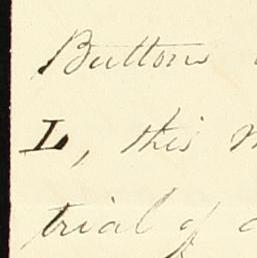 Buttons
L, this
trial of